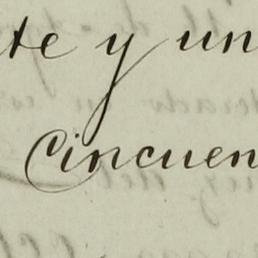 te y un
cincuen